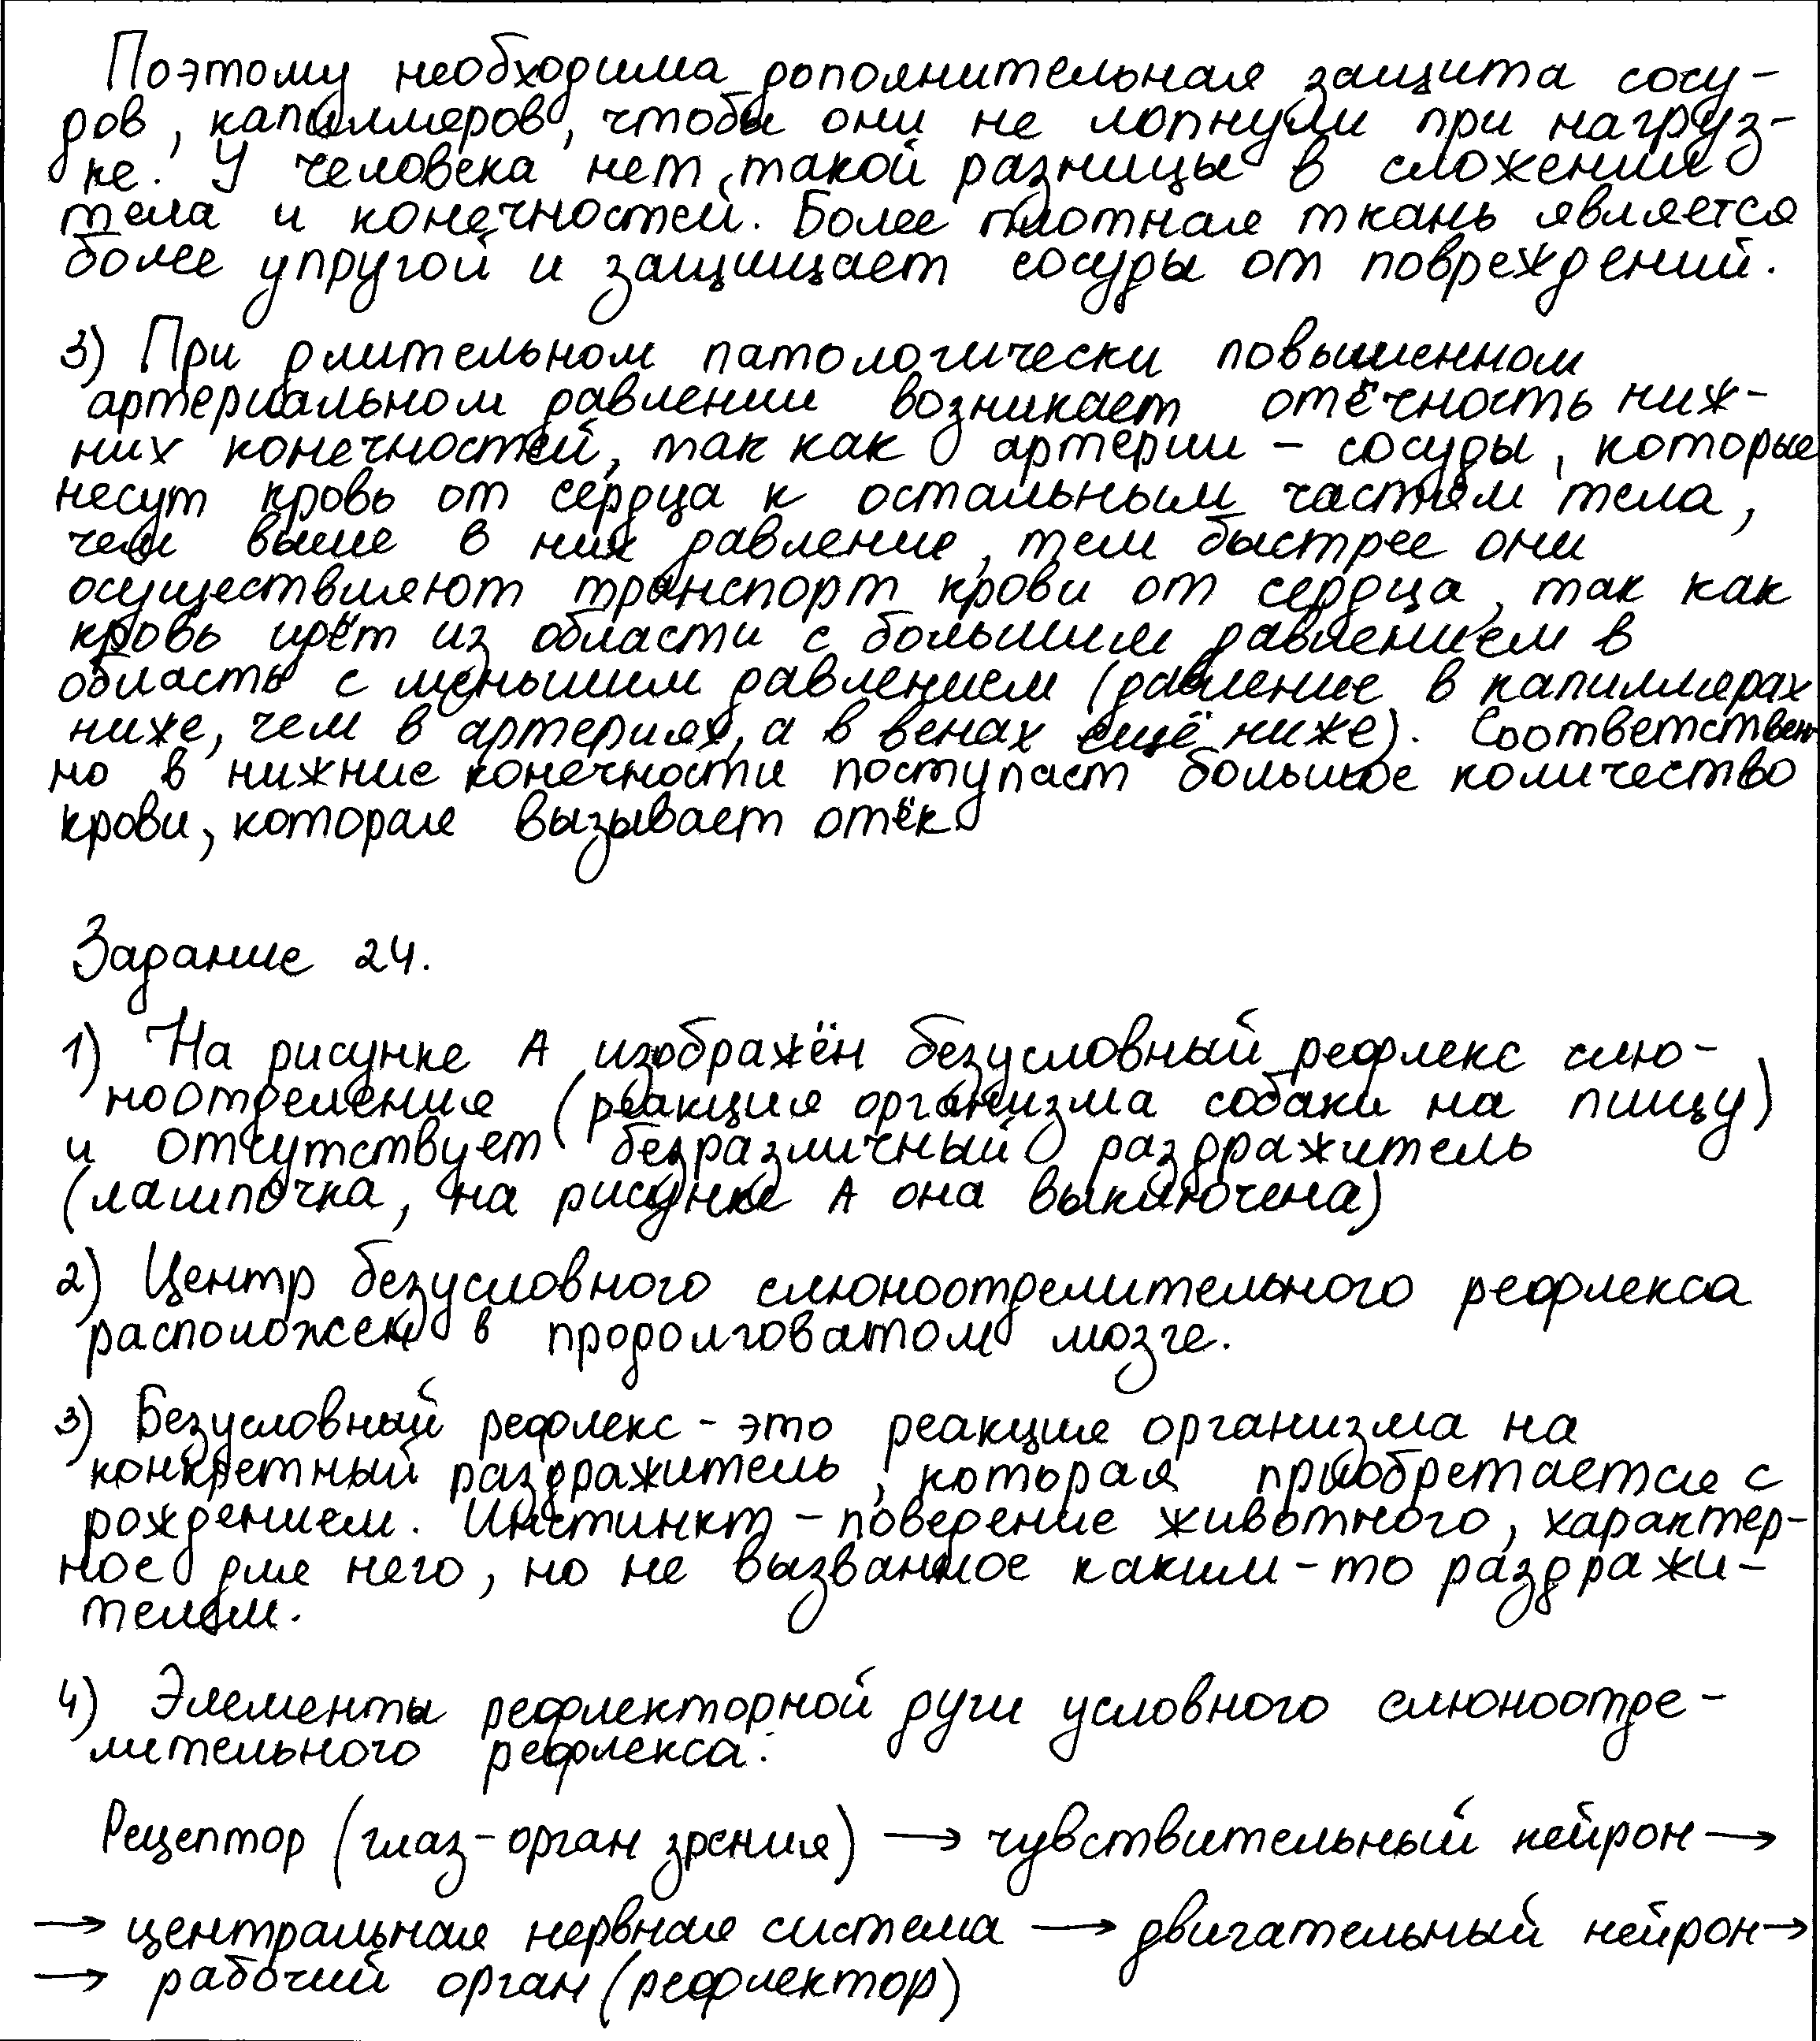 Поэтому необходима дополнительная защита сосу-
дов, капилляров, чтобы они не лопнули при нагруз-
ке. У человека нет такой разницы в сложении
тела и конечностей. Более плотная ткань является
более упругой и защищает сосуды от повреждений.
3) При длительном патологически повышенном
артериальном давлении возникает отёчность ниж-
них конечностей, так как артерии - сосуды, которые
несут кровь от сердца к остальным частям тела,
чем выше в них давление, тем быстрее они
осуществляют транспорт крови от сердца, так как
кровь идёт из области с большим давлением в
область с меньшим давлением (давление в капиллярах
ниже, чем в артериях, а в венах ещё ниже). Соответствен-
но в нижние конечности поступает большое количество
крови, которая вызывает отёк.
Задание 24.
1) На рисунке А изображён безусловный рефлекс слю-
ноотделения (реакция организма собаки на пищу)
и отсутствует безразличный раздражитель
(лампочка, на рисунке А она выключена)
2) Центр безусловного слюноотделительного рефлекса
расположен в продолговатом мозге.
3) Безусловный рефлекс - это реакция организма на
конкретный раздражитель, которая приобретается с
рождением. Инстинкт - поведение животного, характер-
ное для него, но не вызванное каким-то раздражи-
телем.
4) Элементы рефлекторной дуги условного слюноотде-
лительного рефлекса:
Рецептор (глаз-орган зрения) → чувствительный нейрон →
→ центральная нервная система → двигательный нейрон →
→ рабочий орган (рефлектор)